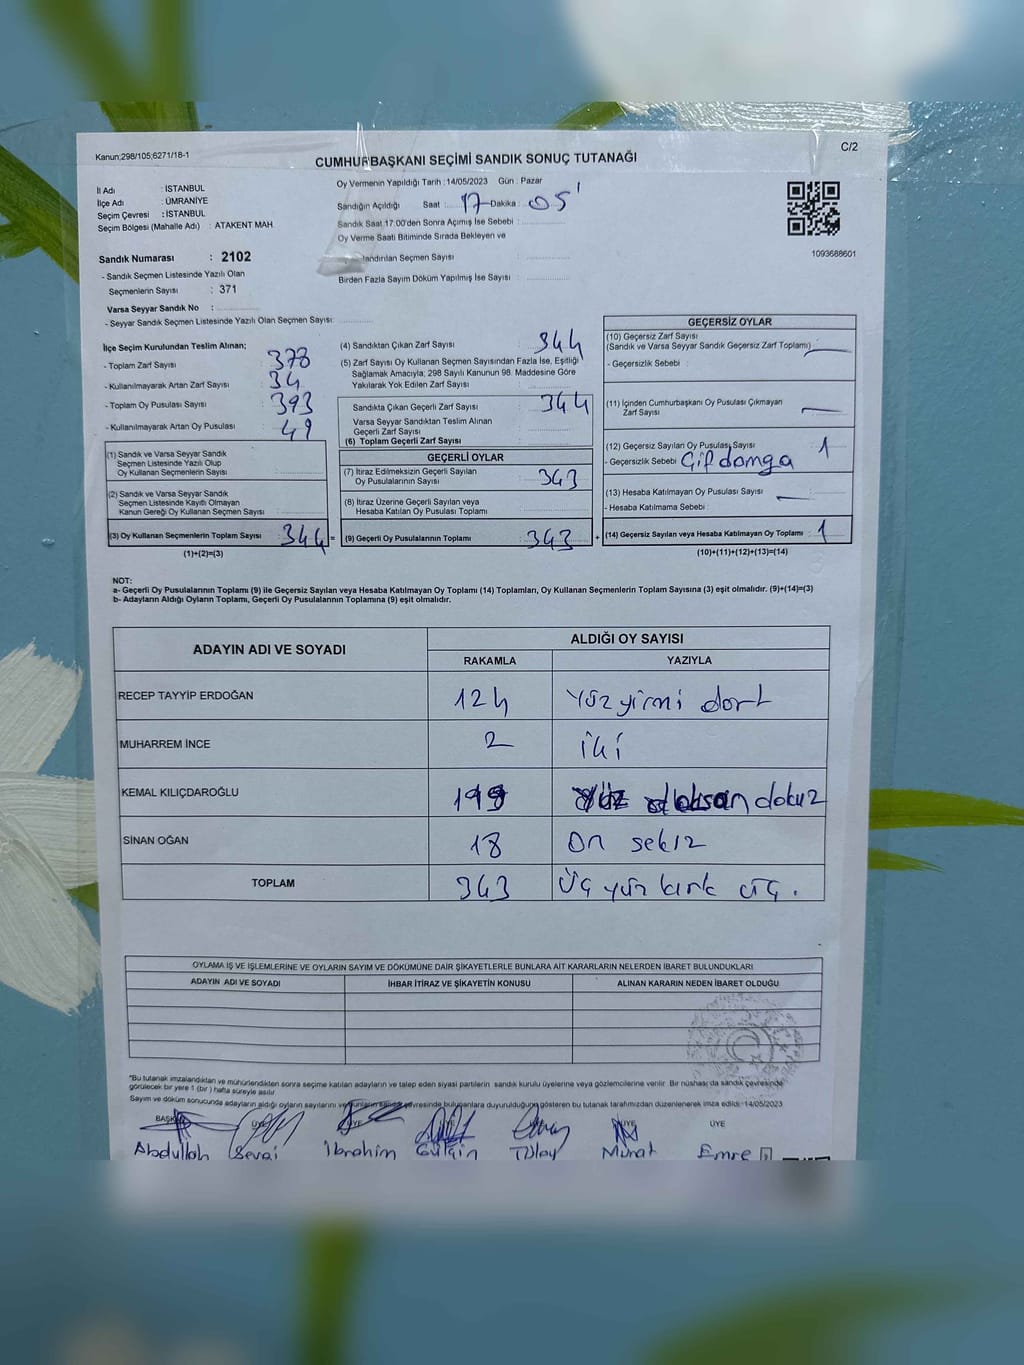 Kanun;298/105;6271/18-1
C/2
CUMHURBAŞKANI SEÇİMİ SANDIK SONUÇ TUTANAĞI
İl Adı : İSTANBUL
İlçe Adı : ÜMRANİYE
Seçim Çevresi : İSTANBUL
Seçim Bölgesi (Mahalle Adı) : ATAKENT MAH
Oy Vermenin Yapıldığı Tarih : 14/05/2023 Gün : Pazar
Sandığın Açıldığı Saat : 17 Dakika : 05'
Sandık Saat 17:00'den Sonra Açımış İse Sebebi :
Oy Verme Saati Bitiminde Sırada Bekleyen ve
Seçmen Sayısı :
Birden Fazla Sayım Döküm Yapılmış İse Sayısı :
1093688601
Sandık Numarası : 2102
- Sandık Seçmen Listesinde Yazılı Olan
Seçmenlerin Sayısı : 371
Varsa Seyyar Sandık No :
- Seyyar Sandık Seçmen Listesinde Yazılı Olan Seçmen Sayısı:
İlçe Seçim Kurulundan Teslim Alınan;
- Toplam Zarf Sayısı : 378
- Kullanılmayarak Artan Zarf Sayısı : 34
- Toplam Oy Pusulası Sayısı : 393
- Kullanılmayarak Artan Oy Pusulası : 49
(1) Sandık ve Varsa Seyyar Sandık
Seçmen Listesinde Yazılı Olup
Oy Kullanan Seçmenlerin Sayısı :
(2) Sandık ve Varsa Seyyar Sandık
Seçmen Listesinde Kayıtlı Olmayan
Kanun Gereği Oy Kullanan Seçmen Sayısı :
(3) Oy Kullanan Seçmenlerin Toplam Sayısı : 344 =
(1)+(2)=(3)
(4) Sandıktan Çıkan Zarf Sayısı : 344
(5) Zarf Sayısı Oy Kullanan Seçmen Sayısından Fazla İse, Eşitliği
Sağlamak Amacıyla; 298 Sayılı Kanunun 98. Maddesine Göre
Yakılarak Yok Edilen Zarf Sayısı :
Sandıkta Çıkan Geçerli Zarf Sayısı : 344
Varsa Seyyar Sandıktan Teslim Alınan
Geçerli Zarf Sayısı :
(6) Toplam Geçerli Zarf Sayısı :
GEÇERLİ OYLAR
(7) İtiraz Edilmeksizin Geçerli Sayılan
Oy Pusulalarının Sayısı : 343
(8) İtiraz Üzerine Geçerli Sayılan veya
Hesaba Katılan Oy Pusulası Toplamı :
(9) Geçerli Oy Pusulalarının Toplamı : 343 +
GEÇERSİZ OYLAR
(10) Geçersiz Zarf Sayısı
(Sandık ve Varsa Seyyar Sandık Geçersiz Zarf Toplamı) :
- Geçersizlik Sebebi :
(11) İçinden Cumhurbaşkanı Oy Pusulası Çıkmayan
Zarf Sayısı :
(12) Geçersiz Sayılan Oy Pusulası Sayısı : 1
- Geçersizlik Sebebi : Çif damga
(13) Hesaba Katılmayan Oy Pusulası Sayısı :
- Hesaba Katılmama Sebebi :
(14) Geçersiz Sayılan veya Hesaba Katılmayan Oy Toplamı : 1
(10)+(11)+(12)+(13)=(14)
NOT:
a- Geçerli Oy Pusulalarının Toplamı (9) ile Geçersiz Sayılan veya Hesaba Katılmayan Oy Toplamı (14) Toplamları, Oy Kullanan Seçmenlerin Toplam Sayısına (3) eşit olmalıdır. (9)+(14)=(3)
b- Adayların Aldığı Oyların Toplamı, Geçerli Oy Pusulalarının Toplamına (9) eşit olmalıdır.
ADAYIN ADI VE SOYADI
ALDIĞI OY SAYISI
RAKAMLA YAZIYLA
RECEP TAYYİP ERDOĞAN 124 Yüz yirmi dört
MUHARREM İNCE 2 iki
KEMAL KILIÇDAROĞLU 199 Yüz doksan dokuz
SİNAN OĞAN 18 On sekiz
TOPLAM 343 Üç yüz kırk üç.
OYLAMA İŞ VE İŞLEMLERİNE VE OYLARIN SAYIM VE DÖKÜMÜNE DAİR ŞİKAYETLERLE BUNLARA AİT KARARLARIN NELERDEN İBARET BULUNDUKLARI
ADAYIN ADI VE SOYADI İHBAR İTİRAZ VE ŞİKAYETİN KONUSU ALINAN KARARIN NEDEN İBARET OLDUĞU
"Bu tutanak imzalandıktan ve mühürlendikten sonra seçime katılan adayların ve talep eden siyasi partilerin sandık kurulu üyelerine veya gözlemcilerine verilir. Bir nüshası da sandık çevresinde
görülecek bir yere 1 (bir) hafta süreyle asılır.
Sayım ve döküm sonucunda adayların aldığı oyların sayılarını ve bunların sandık çevresinde bulunanlara duyurulduğunu gösteren bu tutanak tarafımızdan düzenlenerek imza edildi. 14/05/2023
BAŞKAN ÜYE ÜYE ÜYE ÜYE
Abdullah Sevgi İbrahim Gülçin Tülay Murat Emre